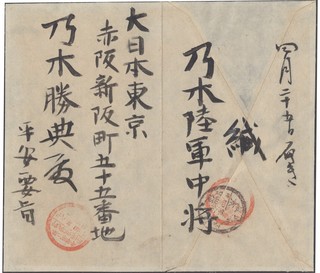 四月二十五日
緘
乃木陸軍中将
大日本東京
赤阪新阪町五十五番地
乃木勝典殿
平安要旨